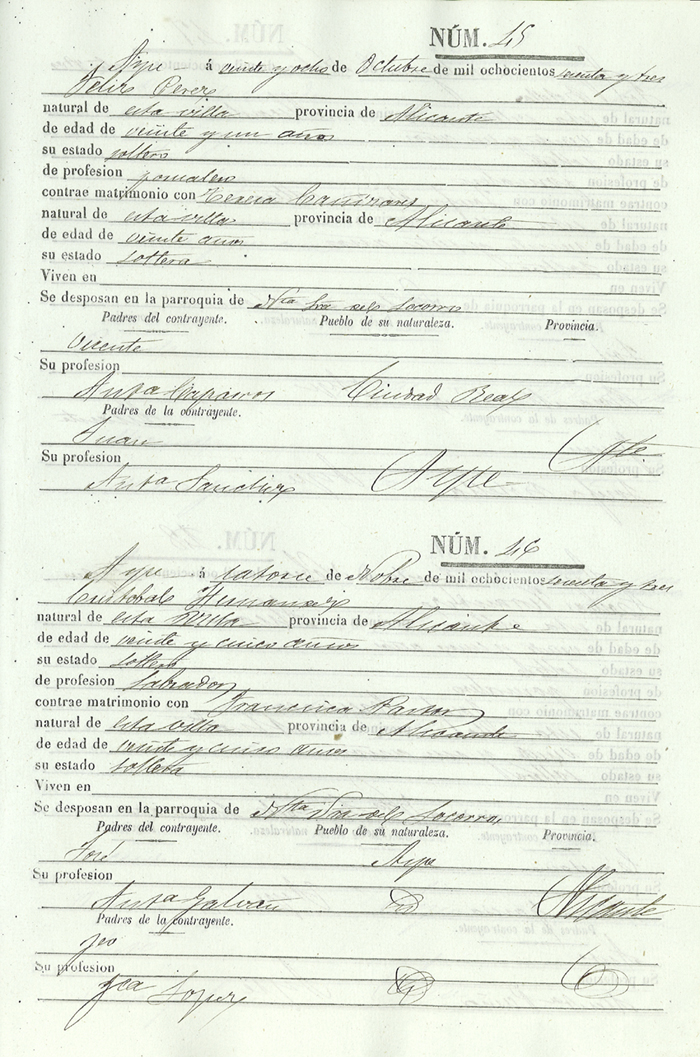 NÚM. 45
Aspe á veinte y ocho de Octubre de mil ochocientos sesenta y tres
Felix Perez
natural de esta villa provincia de Alicante
de edad de veinte y un años
su estado soltero
de profesion jornalero
contrae matrimonio con Teresa Cañizares
natural de esta villa provincia de Alicante
de edad de veinte años
su estado soltera
Viven en
Se desposan en la parroquia de Ntra Sra del Socorro
Padres del contrayente. Pueblo de su naturaleza. Provincia.
Vicente
Su profesion
Ciudad Real
Padres de la contrayente.
Juan
Su profesion
Anta Sanchez Aspe Ate
NÚM. 46
Aspe á catorce de Nobre de mil ochocientos sesenta y tres
Cristobal Hernandez
natural de esta Villa provincia de Alicante
de edad de veinte y cinco años
su estado soltero
de profesion Labrador
contrae matrimonio con Francisca Pastor
natural de esta villa provincia de Alicante
de edad de veinte y cinco años
su estado soltera
Viven en
Se desposan en la parroquia de Ntra Sra del Socorro
Padres del contrayente. Pueblo de su naturaleza. Provincia.
José Aspe
Su profesion
Anta Galvañ Alicante
Padres de la contrayente.
Fco
Su profesion
Fca Lopez